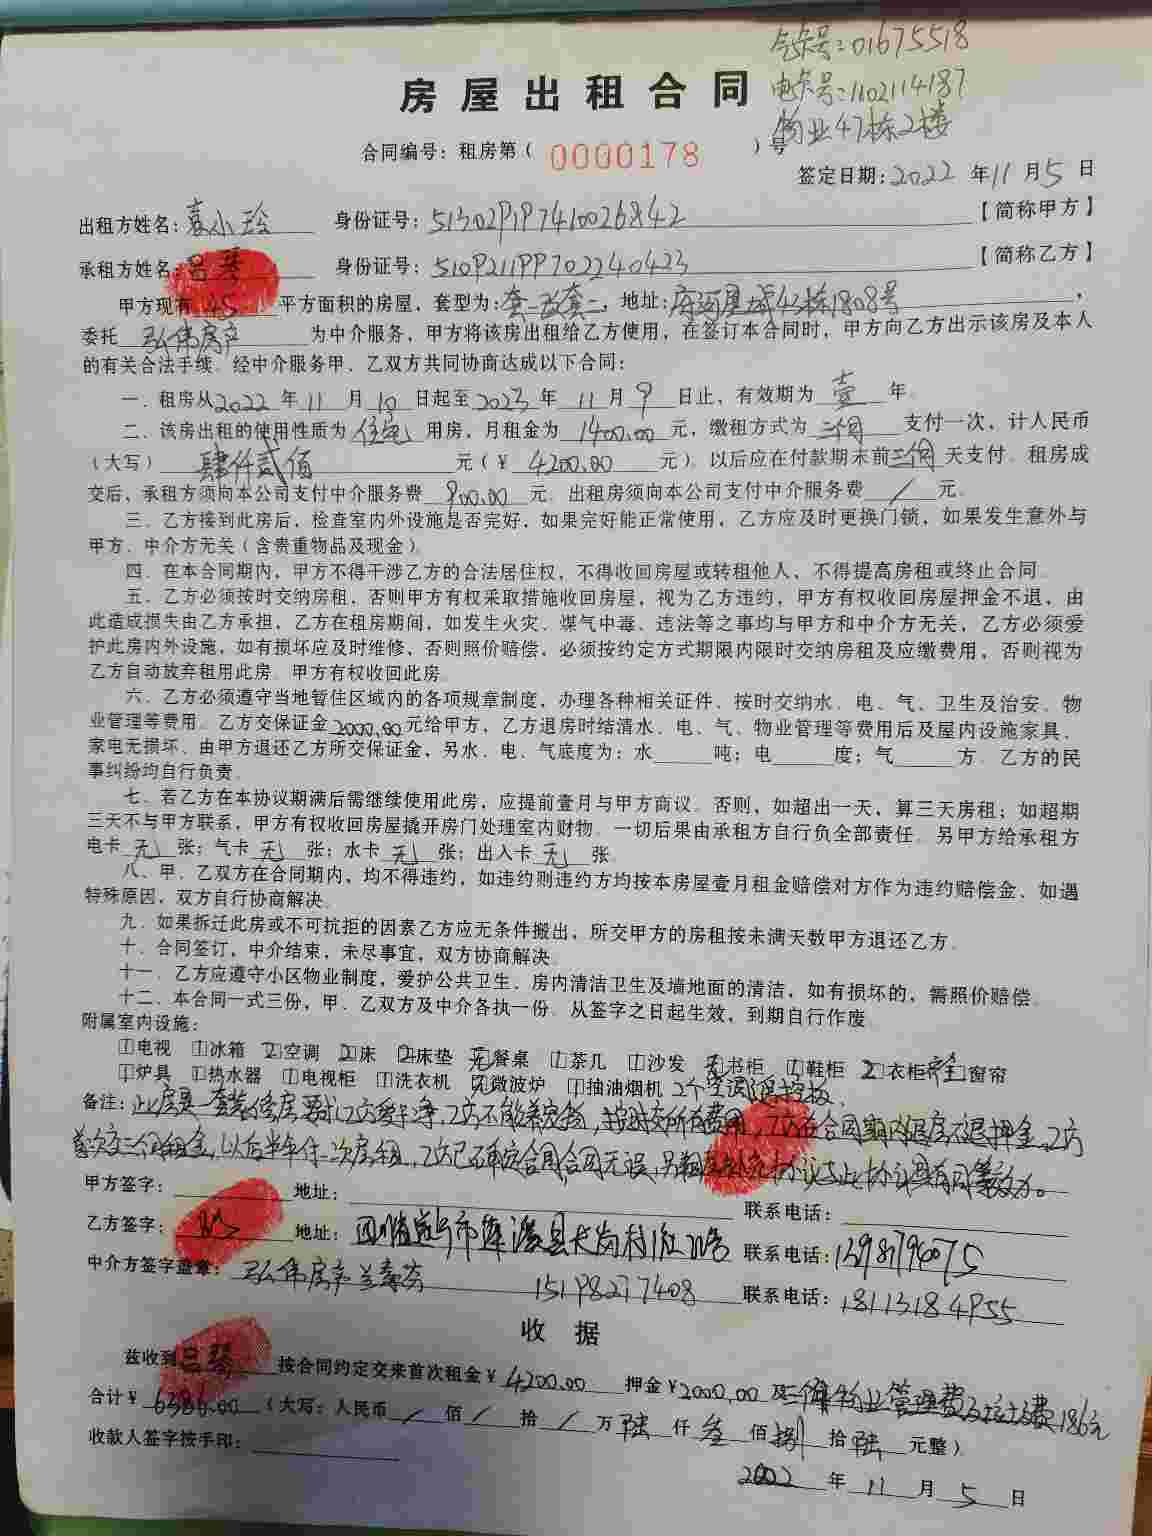 气卡号:01675518
房屋出租合同
电卡号:1102114187
物业47栋2楼
合同编号：租房第（ 0000178 ）号
签定日期:2022年11月5日
出租方姓名:袁小玲 身份证号: 【简称甲方】
承租方姓名:吕琴 身份证号: 【简称乙方】
甲方现有 45 平方面积的房屋，套型为:套一改套二，地址: 43栋1808号，
委托 弘伟房产 为中介服务，甲方将该房出租给乙方使用，在签订本合同时，甲方向乙方出示该房及本人
的有关合法手续．经中介服务甲、乙双方共同协商达成以下合同：
一．租房从2022年11月10日起至2023年11月9日止，有效期为 壹 年．
二、该房出租的使用性质为 住宅 用房，月租金为 1400.00 元，缴租方式为 三个月 支付一次，计人民币
（大写） 肆仟贰佰 元（￥ 4200.00 元）．以后应在付款期末前 天支付．租房成
交后，承租方须向本公司支付中介服务费 900.00 元．出租房须向本公司支付中介服务费 / 元．
三．乙方接到此房后，检查室内外设施是否完好，如果完好能正常使用，乙方应及时更换门锁，如果发生意外与
甲方．中介方无关（含贵重物品及现金）．
四．在本合同期内，甲方不得干涉乙方的合法居住权，不得收回房屋或转租他人，不得提高房租或终止合同．
五．乙方必须按时交纳房租，否则甲方有权采取措施收回房屋，视为乙方违约，甲方有权收回房屋押金不退，由
此造成损失由乙方承担，乙方在租房期间，如发生火灾、煤气中毒、违法等之事均与甲方和中介方无关，乙方必须爱
护此房内外设施，如有损坏应及时维修，否则照价赔偿，必须按约定方式期限内限时交纳房租及应缴费用，否则视为
乙方自动放弃租用此房．甲方有权收回此房．
六．乙方必须遵守当地暂住区域内的各项规章制度，办理各种相关证件、按时交纳水、电、气、卫生及治安、物
业管理等费用．乙方交保证金2000.00元给甲方，乙方退房时结清水、电、气、物业管理等费用后及屋内设施家具．
家电无损坏．由甲方退还乙方所交保证金，另水．电．气底度为：水 吨；电 度；气 方．乙方的民
事纠纷均自行负责．
七．若乙方在本协议期满后需继续使用此房，应提前壹月与甲方商议．否则，如超出一天，算三天房租；如超期
三天不与甲方联系，甲方有权收回房屋撬开房门处理室内财物．一切后果由承租方自行负全部责任．另甲方给承租方
电卡 无 张；气卡 无 张；水卡 无 张；出入卡 无 张．
八．甲．乙双方在合同期内，均不得违约，如违约则违约方均按本房屋壹月租金赔偿对方作为违约赔偿金．如遇
特殊原因，双方自行协商解决．
九．如果拆迁此房或不可抗拒的因素乙方应无条件搬出，所交甲方的房租按未满天数甲方退还乙方．
十．合同签订，中介结束，未尽事宜，双方协商解决．
十一．乙方应遵守小区物业制度，爱护公共卫生、房内清洁卫生及墙地面的清洁，如有损坏的，需照价赔偿．
十二．本合同一式三份，甲．乙双方及中介各执一份．从签字之日起生效，到期自行作废．
附属室内设施：
1电视 1冰箱 2空调 2床 2床垫 无餐桌 1茶几 1沙发 无书柜 1鞋柜 2衣柜 全窗帘
1炉具 1热水器 1电视柜 1洗衣机 无微波炉 1抽油烟机 2个空调遥控板．
备注：此房是一套 房 乙方爱干净，乙方不能养宠物，按时交所有费用，乙方在合同期内退房不退押金，乙方
首次交三个月租金，以后半年付一次房租，乙方已不确定合同合同无误，另 补充协议与此协议具有同等效力。
甲方签字： 地址： 联系电话：
乙方签字： 地址： 市 县 村 联系电话：
中介方签字盖章：弘伟房产 15198277408 联系电话：18113184955
收据
兹收到吕琴 按合同约定交来首次租金￥4200.00 押金￥2000.00及三个月物业管理费及垃圾费186元
合计￥6386.00（大写：人民币 / 佰 / 拾 / 万 陆 仟 叁 佰 捌 拾 陆 元整）
收款人签字按手印：
2022年11月5日